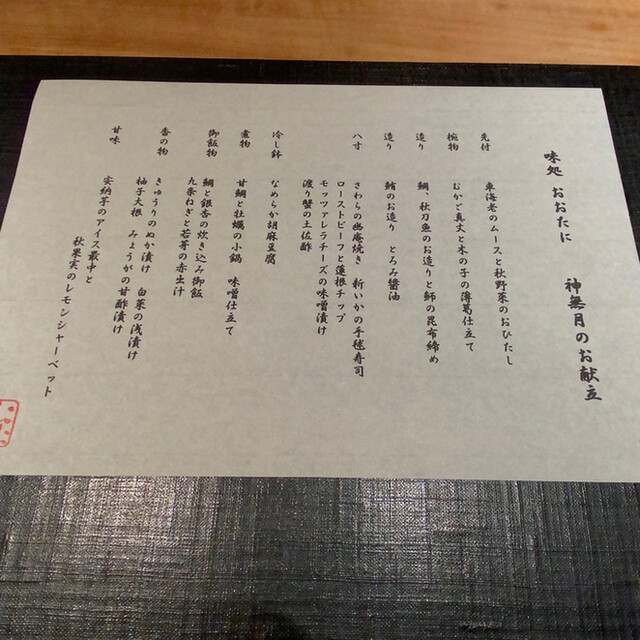 味処 おおたに 神無月のお献立
先付 車海老のムースと秋野菜のおひたし
椀物 むかご真丈と木の子の薄葛仕立て
造り 鯛、秋刀魚のお造りと鰤の昆布締め
造り 鮪のお造り とろみ醤油
八寸 さわらの幽庵焼き 新いかの手毬寿司
ローストビーフと蓮根チップ
モッツァレラチーズの味噌漬け
渡り蟹の土佐酢
冷し鉢 なめらか胡麻豆腐
煮物 甘鯛と牡蠣の小鍋 味噌仕立て
御飯物 鯛と銀杏の炊き込み御飯
九条ねぎと若芽の赤出汁
香の物 きゅうりのぬか漬け 白菜の浅漬け
柚子大根 みょうがの甘酢漬け
甘味 安納芋のアイス最中と
秋果実のレモンシャーベット